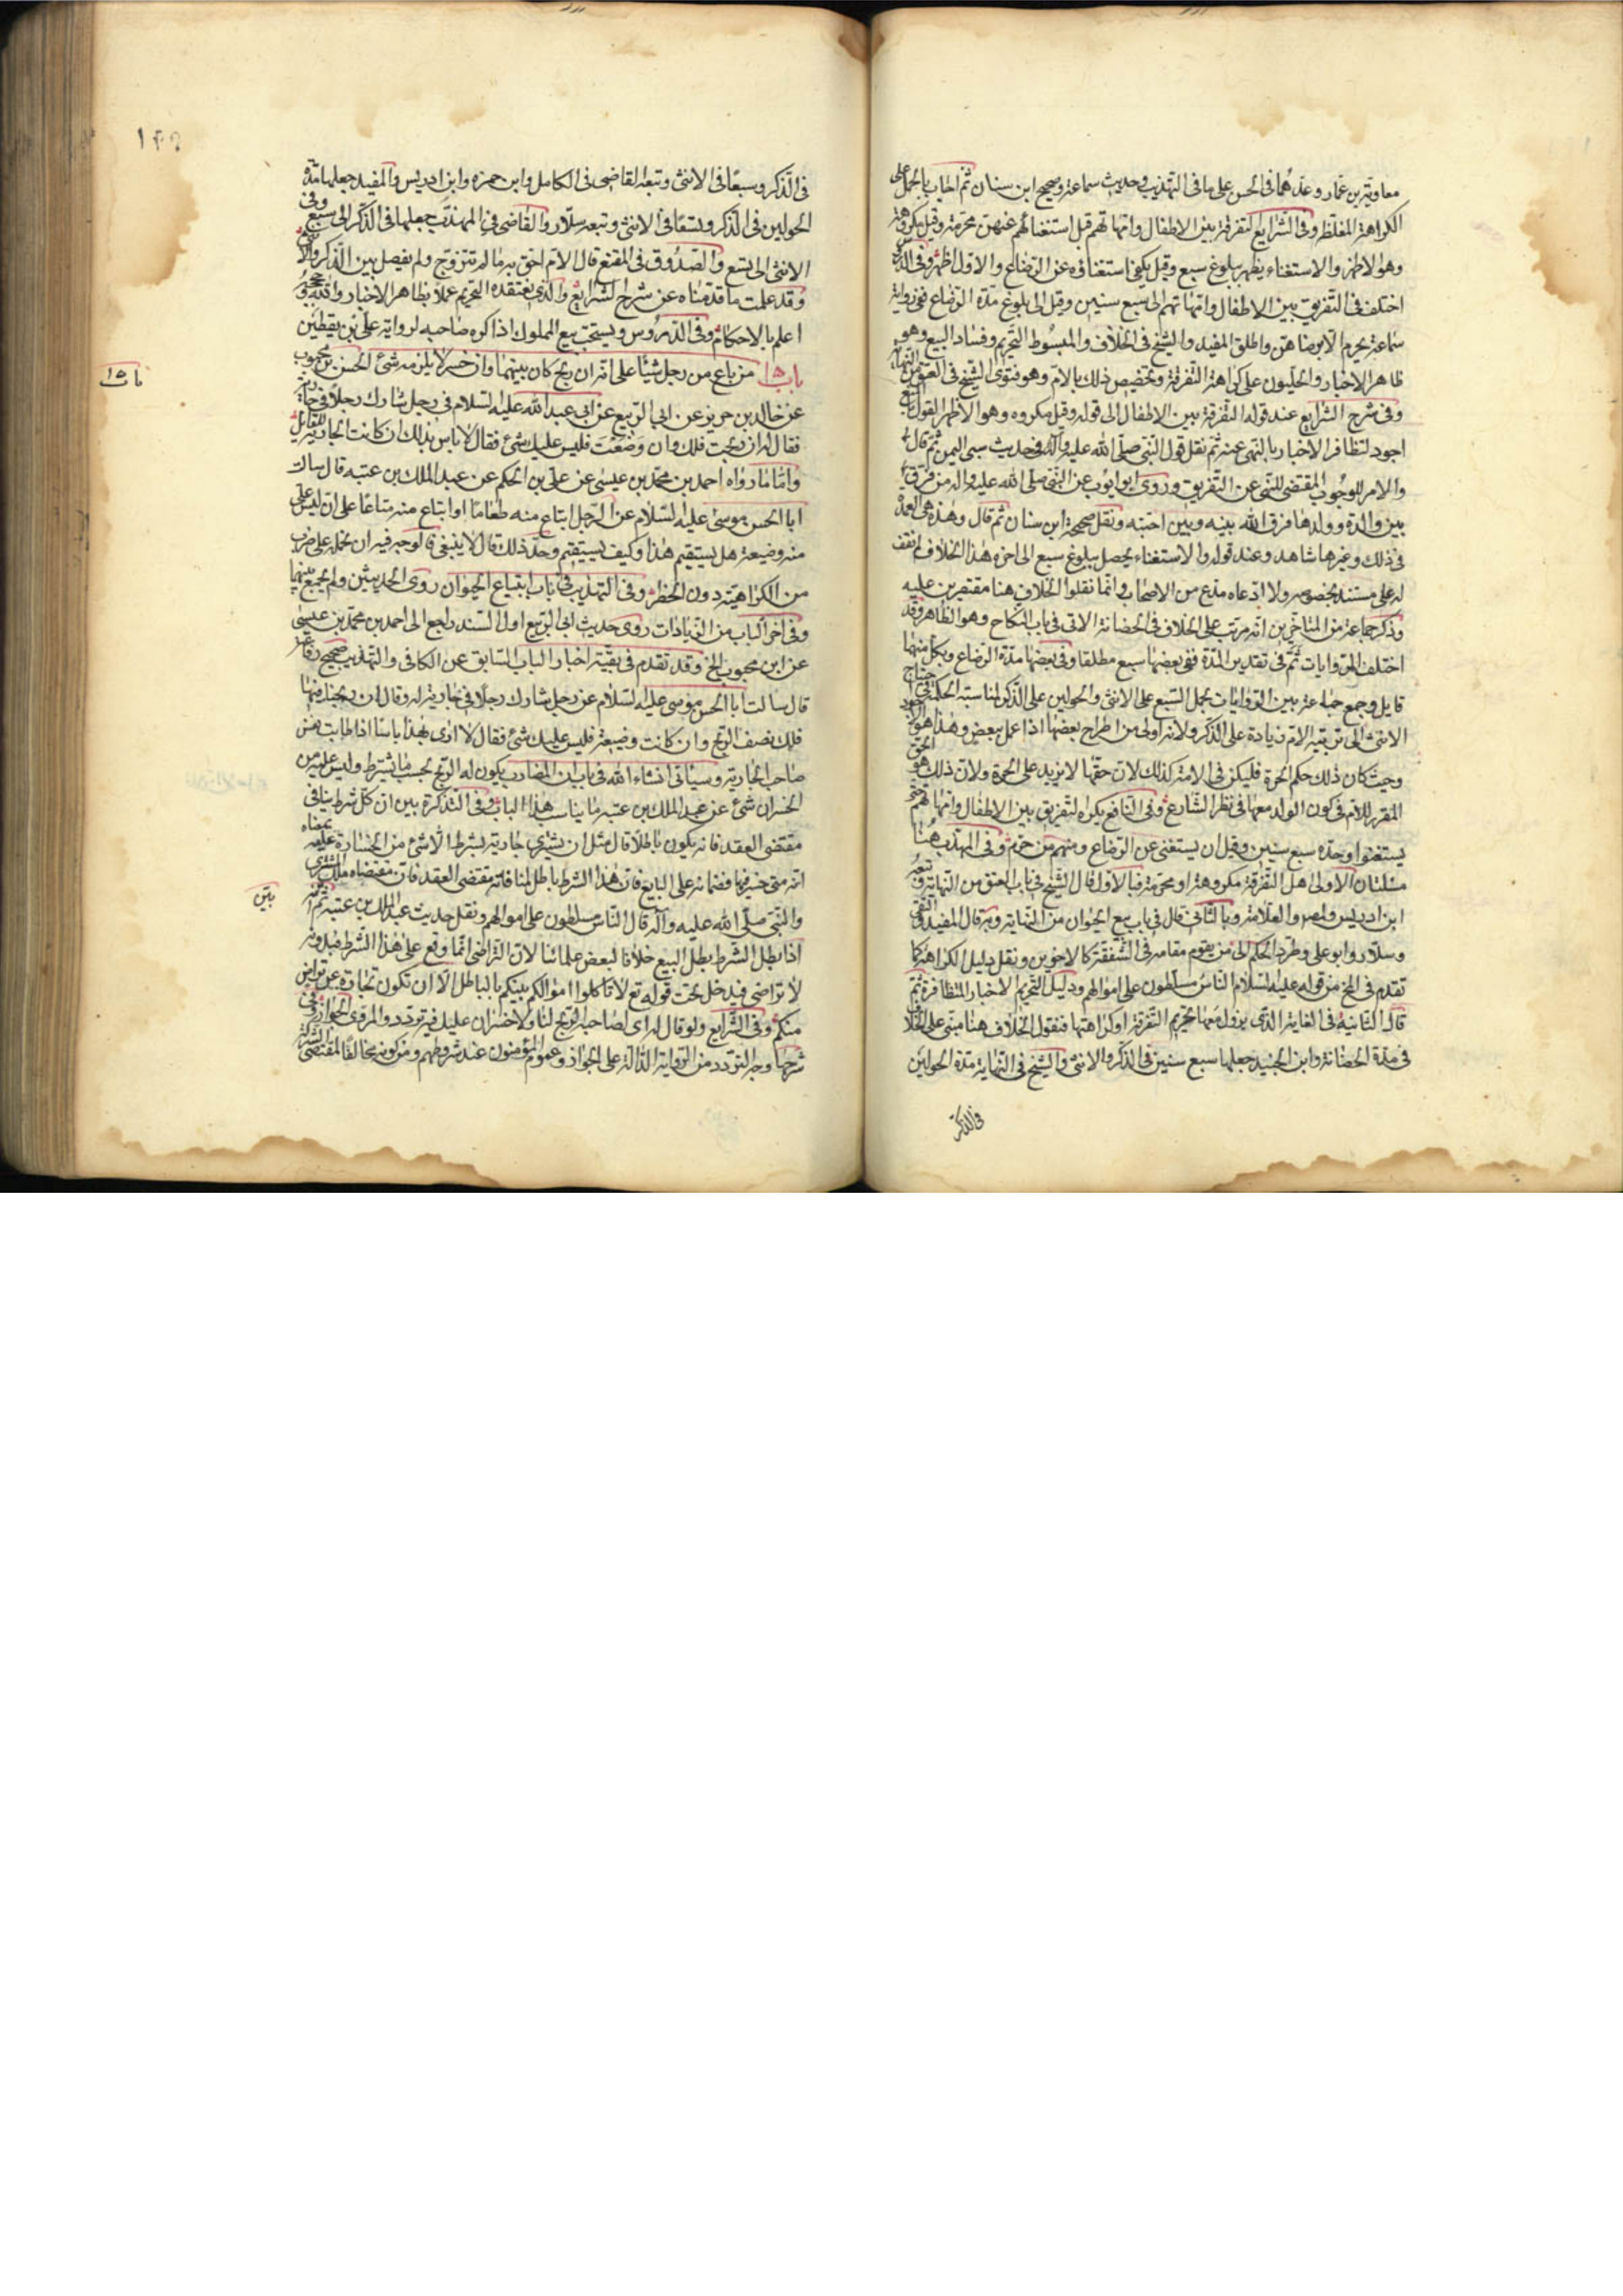 معاوية بن عمار وعدهما في الحسن على ما في التهذيب وحديث سماعة وصحيح ابن سنان ثم اجاب بالحمل على
الكراهة المغلظة وفي الشرايع التفرقة بين الاطفال وامهاتهم قبل استغنائهم عنهن محرمة وقيل مكروهة
وهو الاظهر والاستغناء يظهر ببلوغ سبع وقيل يكفي استغناؤه عن الرضاع والاول اظهر وفي الدروس
اختلف في التفريق بين الاطفال وامهاتهم الى سبع سنين وقيل الى بلوغ مدة الرضاع ففي رواية
سماعة يحرم الا برضاهن واطلق المفيد والشيخ في الخلاف والمبسوط التحريم وفساد البيع وهو
ظاهر الاخبار والحليون على كراهة التفرقة وتخصيص ذلك بالام وهو فتوى الشيخ في العتق من النهاية
وفي شرح الشرايع عند قوله التفرقة بين الاطفال الى قوله وقيل مكروه وهو الاظهر القول
اجود لتظافر الاخبار بالنهي عنه ثم نقل قول النبي صلى الله عليه وآله في حديث سبي اليمن ثم قال
والامر للوجوب المقتضي للنهي عن التفريق وروى ابو ايوب عن النبي صلى الله عليه واله من فرق
بين والدة وولدها فرق الله بينه وبين احبته ونقل صحيحة ابن سنان ثم قال وهذه هي العمدة
في ذلك وغيرها شاهد وعند قوله والاستغناء يحصل ببلوغ سبع الى اخره هذا الخلاف لم نقف
له على مستند بخصوصه ولا ادعاه مدع من الاصحاب وانما نقلوا الخلاف هنا مقتصرين عليه
وذكر جماعة من المتاخرين انه مرتب على الخلاف في الحضانة الاتي في باب النكاح وهو الظاهر وقد
اختلف الروايات ثم في تقدير المدة ففي بعضها سبع مطلقا وفي بعضها مدة الرضاع وبكل منهما
قايل وجمع جماعة بين الروايات بحمل السبع على الانثى والحولين على الذكر لمناسبة الحكمة في احتياج
الانثى الى تربية الام زيادة على الذكر ولانه اولى من اطراح بعضها اذا عمل ببعض وهذا هو الاجود
وحيث كان ذلك حكم الحرة فليكن في الامة كذلك لان حقها لا يزيد على الحرة ولان ذلك هو الحق
المقرر للام في كون الولد معها في نظر الشارع وفي النافع يكره التفريق بين الاطفال وامهاتهم حتى
يستغنوا وحده سبع سنين وقيل ان يستغني عن الرضاع ومنهم من حرم وفي المهذب هنا
مسئلتان الاولى هل التفرقة مكروهة او محرمة فبالاول قال الشيخ في باب العتق من النهاية وتبعه
ابن ادريس والمصـ والعلامة وبالثاني قال في باب بيع الحيوان من النهاية وبه قال المفيد والتقي
وسلار وابو علي وطرد الحكم الى من يقوم مقامه في الشفقة كالاخوين ونقل دليل الكراهة كما
تقدم في المخ من قوله عليه السلام الناس مسلطون على اموالهم ودليل التحريم الاخبار المتظافرة ثم
قال الثانية في الغاية التي يزول معها تحريم التفرقة او كراهتها فنقول الخلاف هنا مبني على الخلاف
في مدة الحضانة وابن الجنيد جعلها سبع سنين في الذكر والانثى والشيخ في النهاية مدة الحولين
في الذكر
في الذكر وسبعا في الانثى وتبعه القاضي في الكامل وابن حمزه وابن ادريس والمفيد جعلها مدة
الحولين في الذكر وتسعا في الانثى وتبعه سلار والقاضي في المهذب جعلها في الذكر الى سبع وفي
الانثى الى تسع والصدوق في المقنع قال الام احق به ما لم تتزوج ولم يفصل بين الذكر والانثى
وقد علمت ما قدمناه عن شرح الشرايع والذي نعتقده التحريم عملا بظاهر الاخبار والله وحججه
اعلم بالاحكام وفي الدروس ويستحب بيع المملوك اذا كره صاحبه لرواية علي بن يقطين
باب ١٥ من باع من رجل شيئا على انه ان ربح كان بينهما وان خسر لا يلزمه شئ الحسن بن محبوب
عن خالد بن حريز عن ابي الربيع عن ابي عبد الله عليه السلام في رجل شارك رجلا في جارية
فقال له ان ربحت فلك وان وضعت فليس عليك شئ فقال لا باس بذلك ان كانت الجارية للقائل
واما ما رواه احمد بن محمد بن عيسى عن علي بن الحكم عن عبد الملك بن عتبه قال سالت
ابا الحسن موسى عليه السلام عن الرجل ابتاع منه طعاما او ابتاع منه متاعا على ان ليس علي
منه وضيعة هل يستقيم هذا وكيف يستقيم وحد ذلك قال لا ينبغي فالوجه فيه ان نحمله على ضرب
من الكراهية دون الحظر وفي التهذيب في باب ابتياع الحيوان روى الحديثين ولم يجمع بينهما
وفي اخر الباب من الزيادات روى حديث ابي الربيع اول السند راجع الى احمد بن محمد بن عيسى
عن ابن محبوب الخ وقد تقدم في بقية اخبار الباب السابق عن الكافي والتهذيب صحيح رفاعة
قال سالت ابا الحسن موسى عليه السلام عن رجل شارك رجلا في جارية له وقال ان ربحنا فيها
فلك نصف الربح وان كانت وضيعة فليس عليك شئ فقال لا ارى بهذا باسا اذا طابت نفس
صاحب الجارية وسياتي انشاء الله في باب ان المضارب يكون له الربح بحسب ما يشترط وليس عليه من
الخسران شئ عن عبد الملك بن عتبه ما يناسب هذا الباب وفي التذكرة بين ان كل شرط ينافي
مقتضى العقد فانه يكون باطلا قال مثل ان يشتري جارية بشرط الا شئ من الخسارة عليه بمعناه
انه متى خسر فيها فضمانه على البايع فان هذا الشرط باطل لمنافاته مقتضى العقد فان مقتضاه ملك المشتري
والنبي صلى الله عليه وآله قال الناس مسلطون على اموالهم ونقل حديث عبد الملك بن عتبه ثم انه
بين
اذا بطل الشرط بطل البيع خلافا لبعض علمائنا لان التراضي انما وقع على هذا الشرط فبدونه
لا تراضي فيدخل تحت قوله تع لا تاكلوا اموالكم بينكم بالباطل الا ان تكون تجارة عن تراض
منكم وفي الشرايع ولو قال له اي لصاحبه الربح لنا ولا خسران عليك فيه تردد والمروي الجواز وفي
شرحها وجه التردد من الرواية الدالة على الجواز وعموم المؤمنون عند شروطهم ومن كونه مخالفا لمقتضى الشركة
باب ١٥